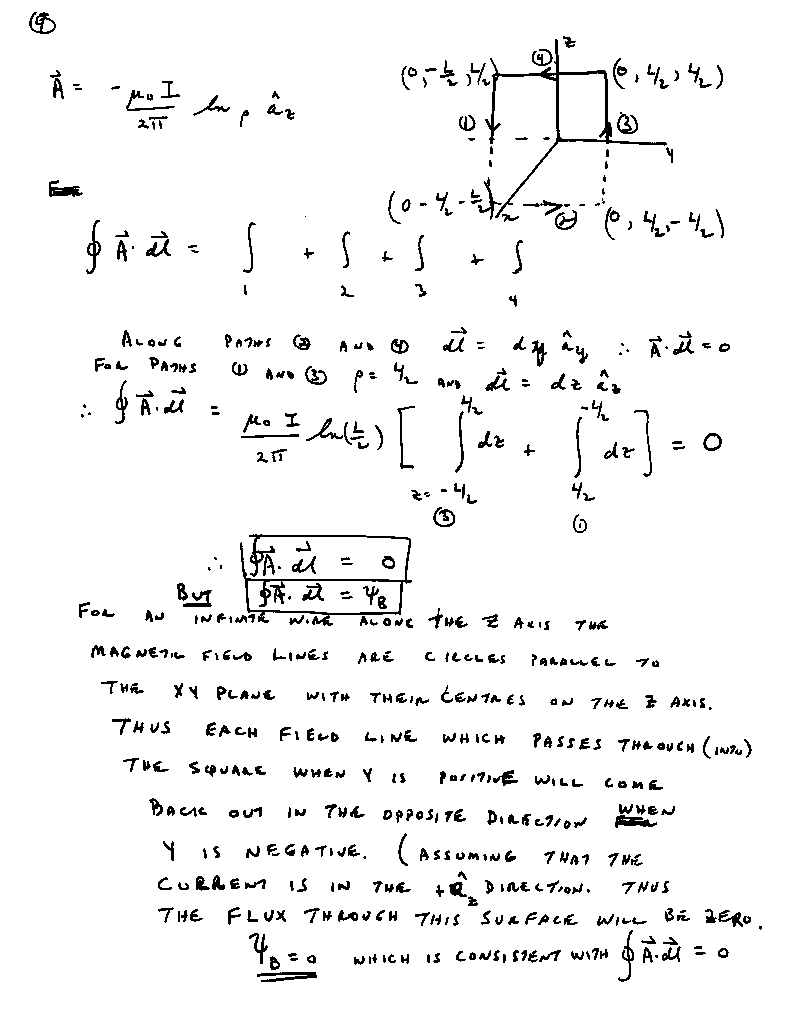 9
z
(0, -L/2, L/2)
④
(0, L/2, L/2)
A⃗ = - μ₀ I / 2π ln ρ â_z
①
③
y
(0 -L/2 -L/2)
x
②
(0, L/2, -L/2)
∮ A⃗ · dl⃗ = ∫₁ + ∫₂ + ∫₃ + ∫₄
ALONG PATHS ② AND ④ dl⃗ = dy â_y ∴ A⃗ · dl⃗ = 0
FOR PATHS ① AND ③ ρ = L/2 AND dl⃗ = dz â_z
∴ ∮ A⃗ · dl⃗ = μ₀ I / 2π ln(L/2) [ ∫_{z=-L/2}^{L/2} dz + ∫_{L/2}^{-L/2} dz ] = 0
③ ①
∴ ∮ A⃗ · dl⃗ = 0
BUT ∮ A⃗ · dl⃗ = Ψ_B
FOR AN INFINITE WIRE ALONG THE Z AXIS THE
MAGNETIC FIELD LINES ARE CIRCLES PARALLEL TO
THE XY PLANE WITH THEIR CENTRES ON THE Z AXIS.
THUS EACH FIELD LINE WHICH PASSES THROUGH (INTO)
THE SQUARE WHEN Y IS POSITIVE WILL COME
BACK OUT IN THE OPPOSITE DIRECTION WHEN
Y IS NEGATIVE. (ASSUMING THAT THE
CURRENT IS IN THE +â_z DIRECTION. THUS
THE FLUX THROUGH THIS SURFACE WILL BE ZERO.
Ψ_B = 0 WHICH IS CONSISTENT WITH ∮ A⃗ · dl⃗ = 0